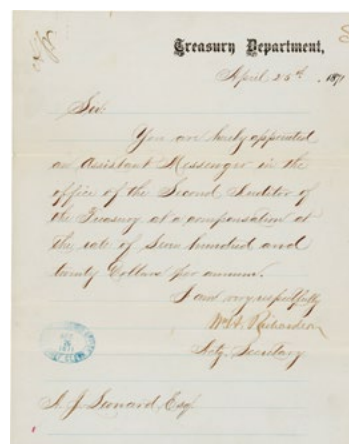 Treasury Department,
April 25th, 1871
Sir:
You are hereby appointed
an Assistant Messenger in the
office of the Second Auditor of
the Treasury at a compensation at
the rate of Seven hundred and
twenty Dollars per annum.
I am very respectfully
Wm. A. Richardson
Actg. Secretary
A. J. Leonard, Esq.